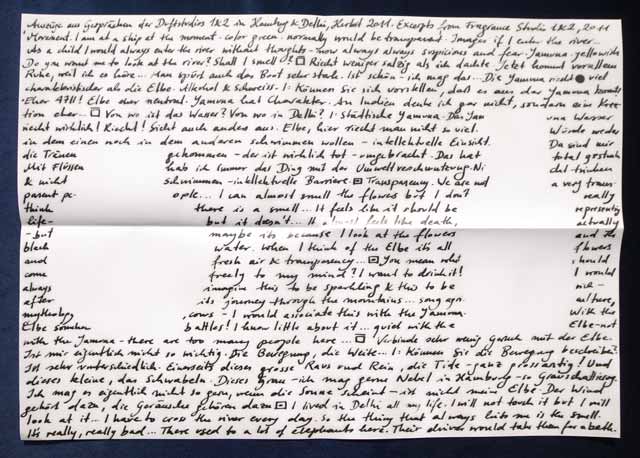 Auszüge aus Gesprächen der Duftstudios 1&2 in Hamburg & Delhi, Herbst 2011. Excerpts from Fragrance Studio 1&2, 2011
Movement. I am at a ship at the moment - color green - normally would be transparent. Imagin if I enter the river...
As a child I would always enter the river without thoughts - now always always suspicious and fear. Jamuna-yellowish
Do you want me to look at the river? Shall I smell? Riecht weniger salzig als ich dachte. Jetzt kommt vor allem
Ruhe, weil ich es höre... Man spürt auch das Boot sehr stark. Ist schön, ich mag das... Die Yamuna riecht viel
charakteristischer als die Elbe. Alkohol & Schweiss. I: Können Sie sich vorstellen, daß es aus der Yamuna kommt?
Eher 4711! Elbe eher neutral. Yamuna hat Charakter. An Indien denke ich gar nicht, sondern eine
tion eher... Von wo ist das Wasser? Von wo in Delhi? I: Städtische Yamuna. Das Yam una Wasser
riecht wirklich! Riecht! Sieht auch anders aus. Elbe, hier riecht man nicht so viel. Würde weder
in dem einen noch in dem anderen schwimmen wollen - intellektuelle Einsicht. Da sind mir
die Tränen gekommen - der ist wirklich tot - umgebracht. Das hat total gestunken
Mit Flüssen hab ich immer das Ding mit der Umweltverschmutzung. Ni cht trinken
& nicht schwimmen - intellektuelle Barriere. Transparency. We are not a very trans-
parent pe- ople... I can almost smell the flowers but I don't really
think there is a smell... It feels like it should be representing
life - but it doesn't... It almost feels like death, actually
- but maybe its because I look at the flowers and the
black water. When I think of the Elbe its all flowers
and fresh air & transparency... You mean what should
come freely to my mind? I want to drink it! I would
always imagine this to be sparkling & this to be rich -
after its journey through the mountains... song again. culture,
mythology, cows - I would asociate this with the Yamuna. With the
Elbe somehow battles! I know little about it... quid with the Elbe - not
with the Jamuna - there are too many people here... Verbinde sehr wenig Geruch mit der Elbe.
Ist mir eigentlich nicht so wichtig. Die Bewegung, die Weite... I: Können Sie die Bewegung beschreiben?
Ist sehr unterschiedlich. Einerseits dieses grosse Raus und Rein, die Tide - ganz grossartig! Und
dieses kleine, das Schwabeln. Dieses grau - ich mag gerne Nebel in Hamburg - so Grauschattierung.
Ich mag es eigentlich nicht so gern, wenn die Sonne scheint - ist nicht mein Elbe. Der Wind
gehört dazu, die Geräusche gehören dazu I lived in Delhi all my life. I will not touch it but I will
look at it... I have to cross the river every day. So the thing that always hits me is the smell.
It's really, really bad... There used to a lot of elephants here. Their driver would take them for a bath.